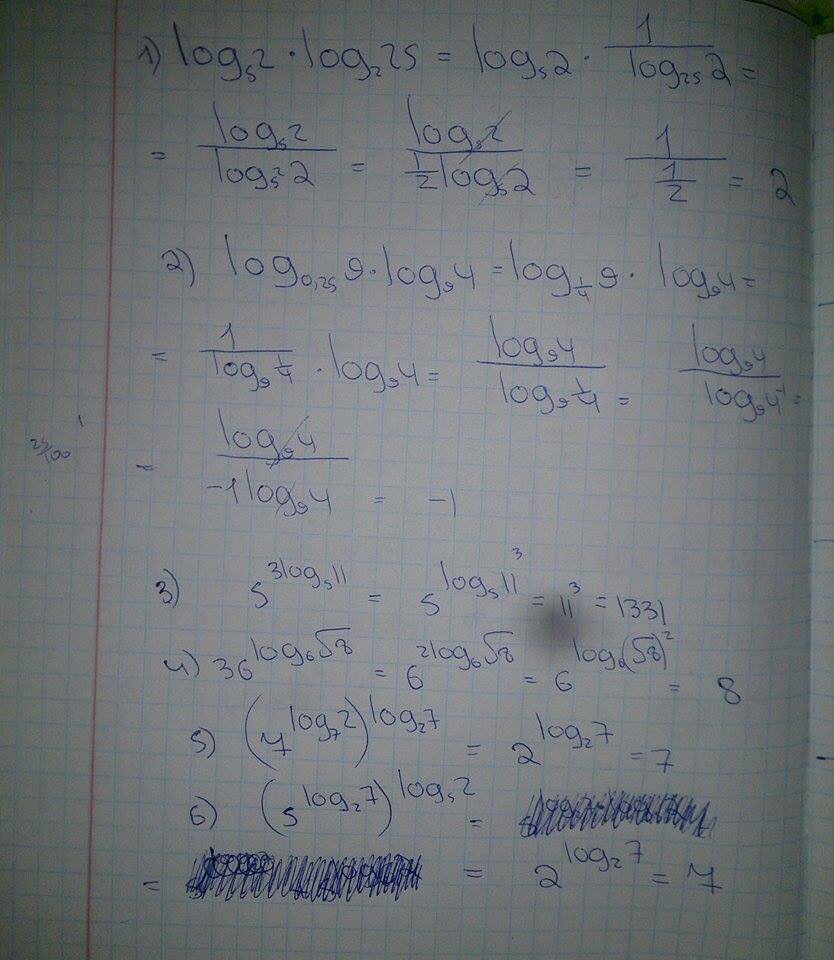 1) log₅2 · log₂25 = log₅2 · 1/log₂₅2 =
= log₅2/log₅²2 = log₅2/(1/2 log₅2) = 1/(1/2) = 2
2) log₀,₂₅9 · log₉4 = log_{1/4}9 · log₉4 =
= 1/(log₉ 1/4) · log₉4 = log₉4/(log₉ 1/4) = log₉4/log₉4⁻¹ =
25/100
= log₉4/(-1 log₉4) = -1
3) 5^{3log₅11} = 5^{log₅11³} = 11³ = 1331
4) 36^{log₆√8} = 6^{2log₆√8} = 6^{log₆(√8)²} = 8
5) (7^{log₇2})^{log₂7} = 2^{log₂7} = 7
6) (5^{log₂7})^{log₅2} =
= = 2^{log₂7} = 7